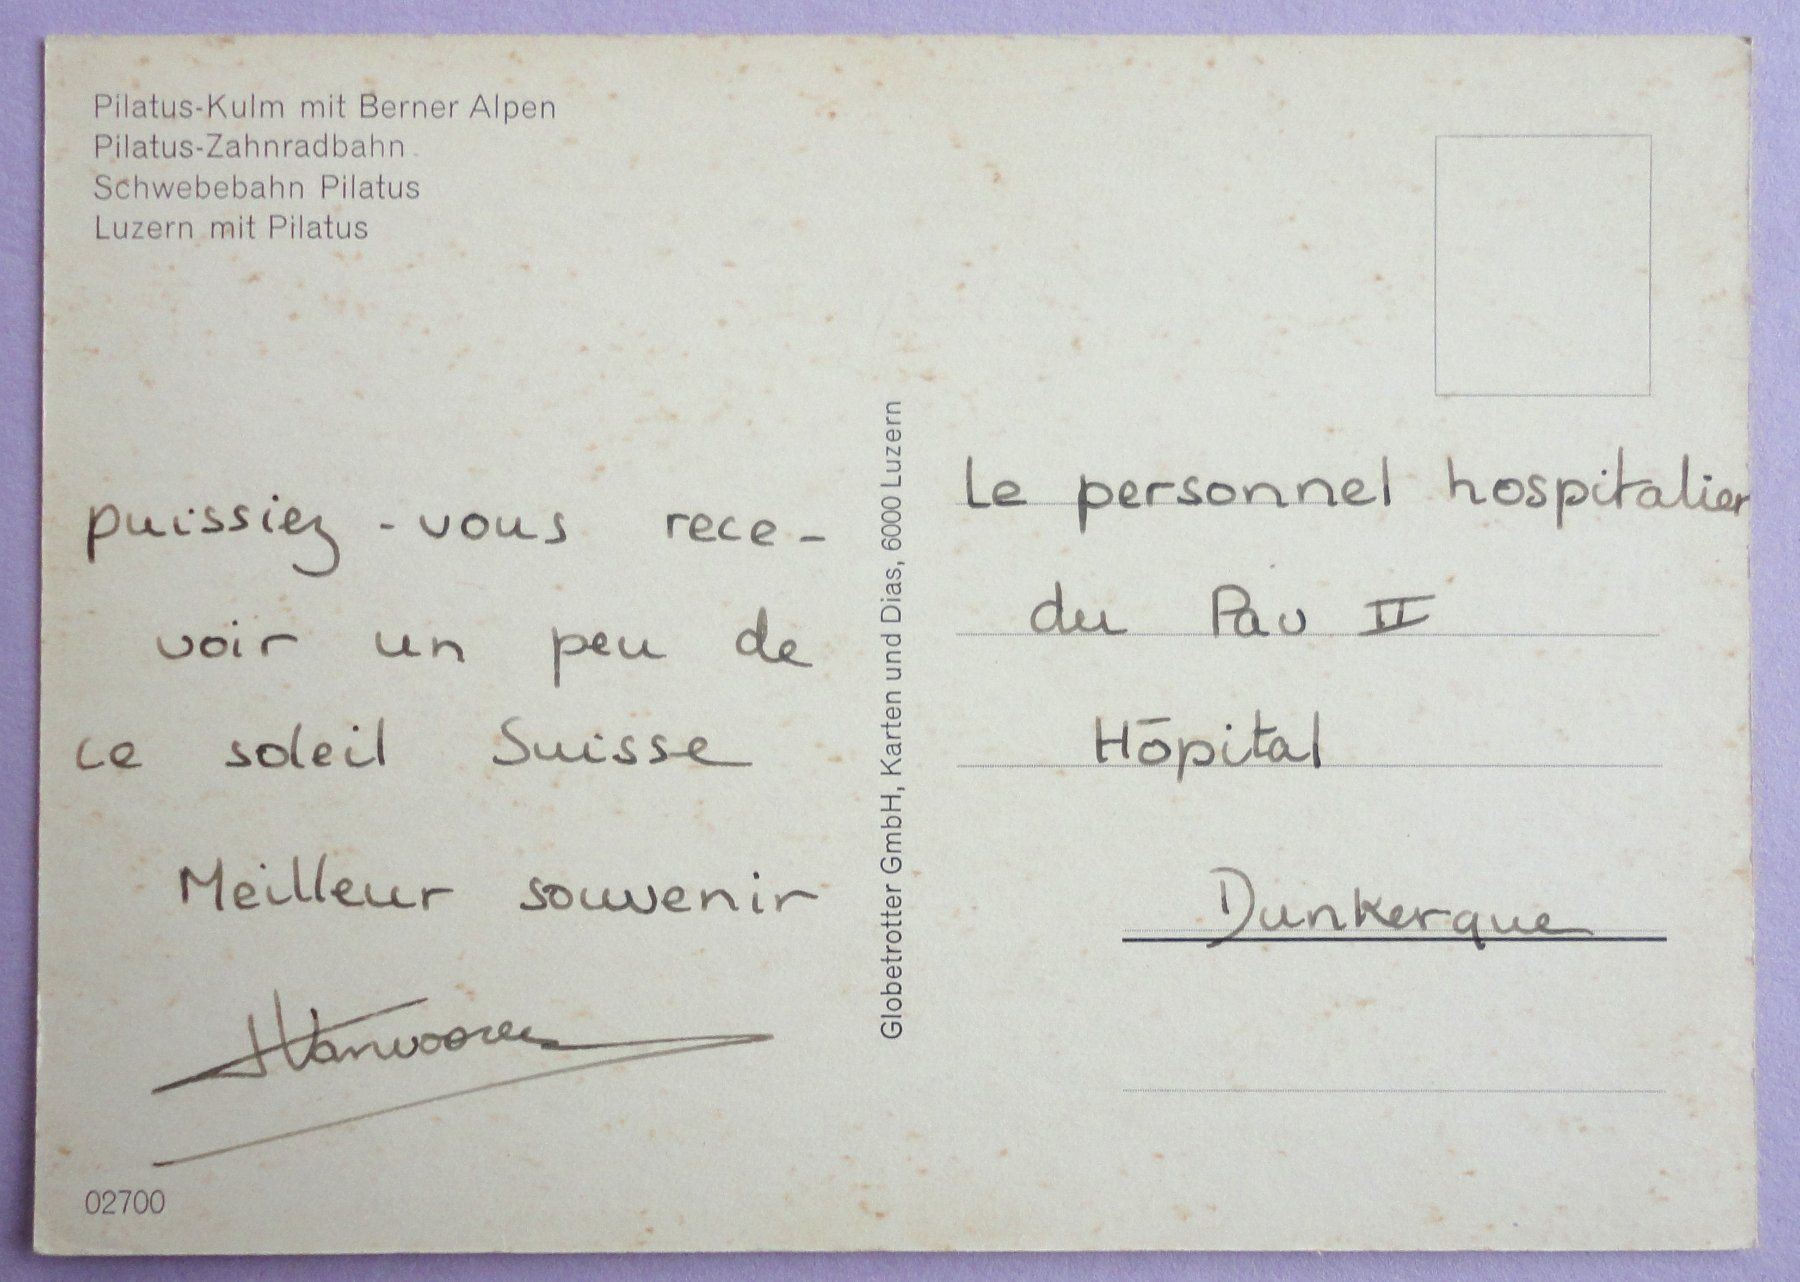 Pilatus-Kulm mit Berner Alpen
Pilatus-Zahnradbahn
Schwebebahn Pilatus
Luzern mit Pilatus
puissiez-vous rece-
voir un peu de
ce soleil Suisse
Meilleur souvenir
02700
Globetrotter GmbH, Karten und Dias, 6000 Luzern
Le personnel hospitalier
du Pav II
Hôpital
Dunkerque